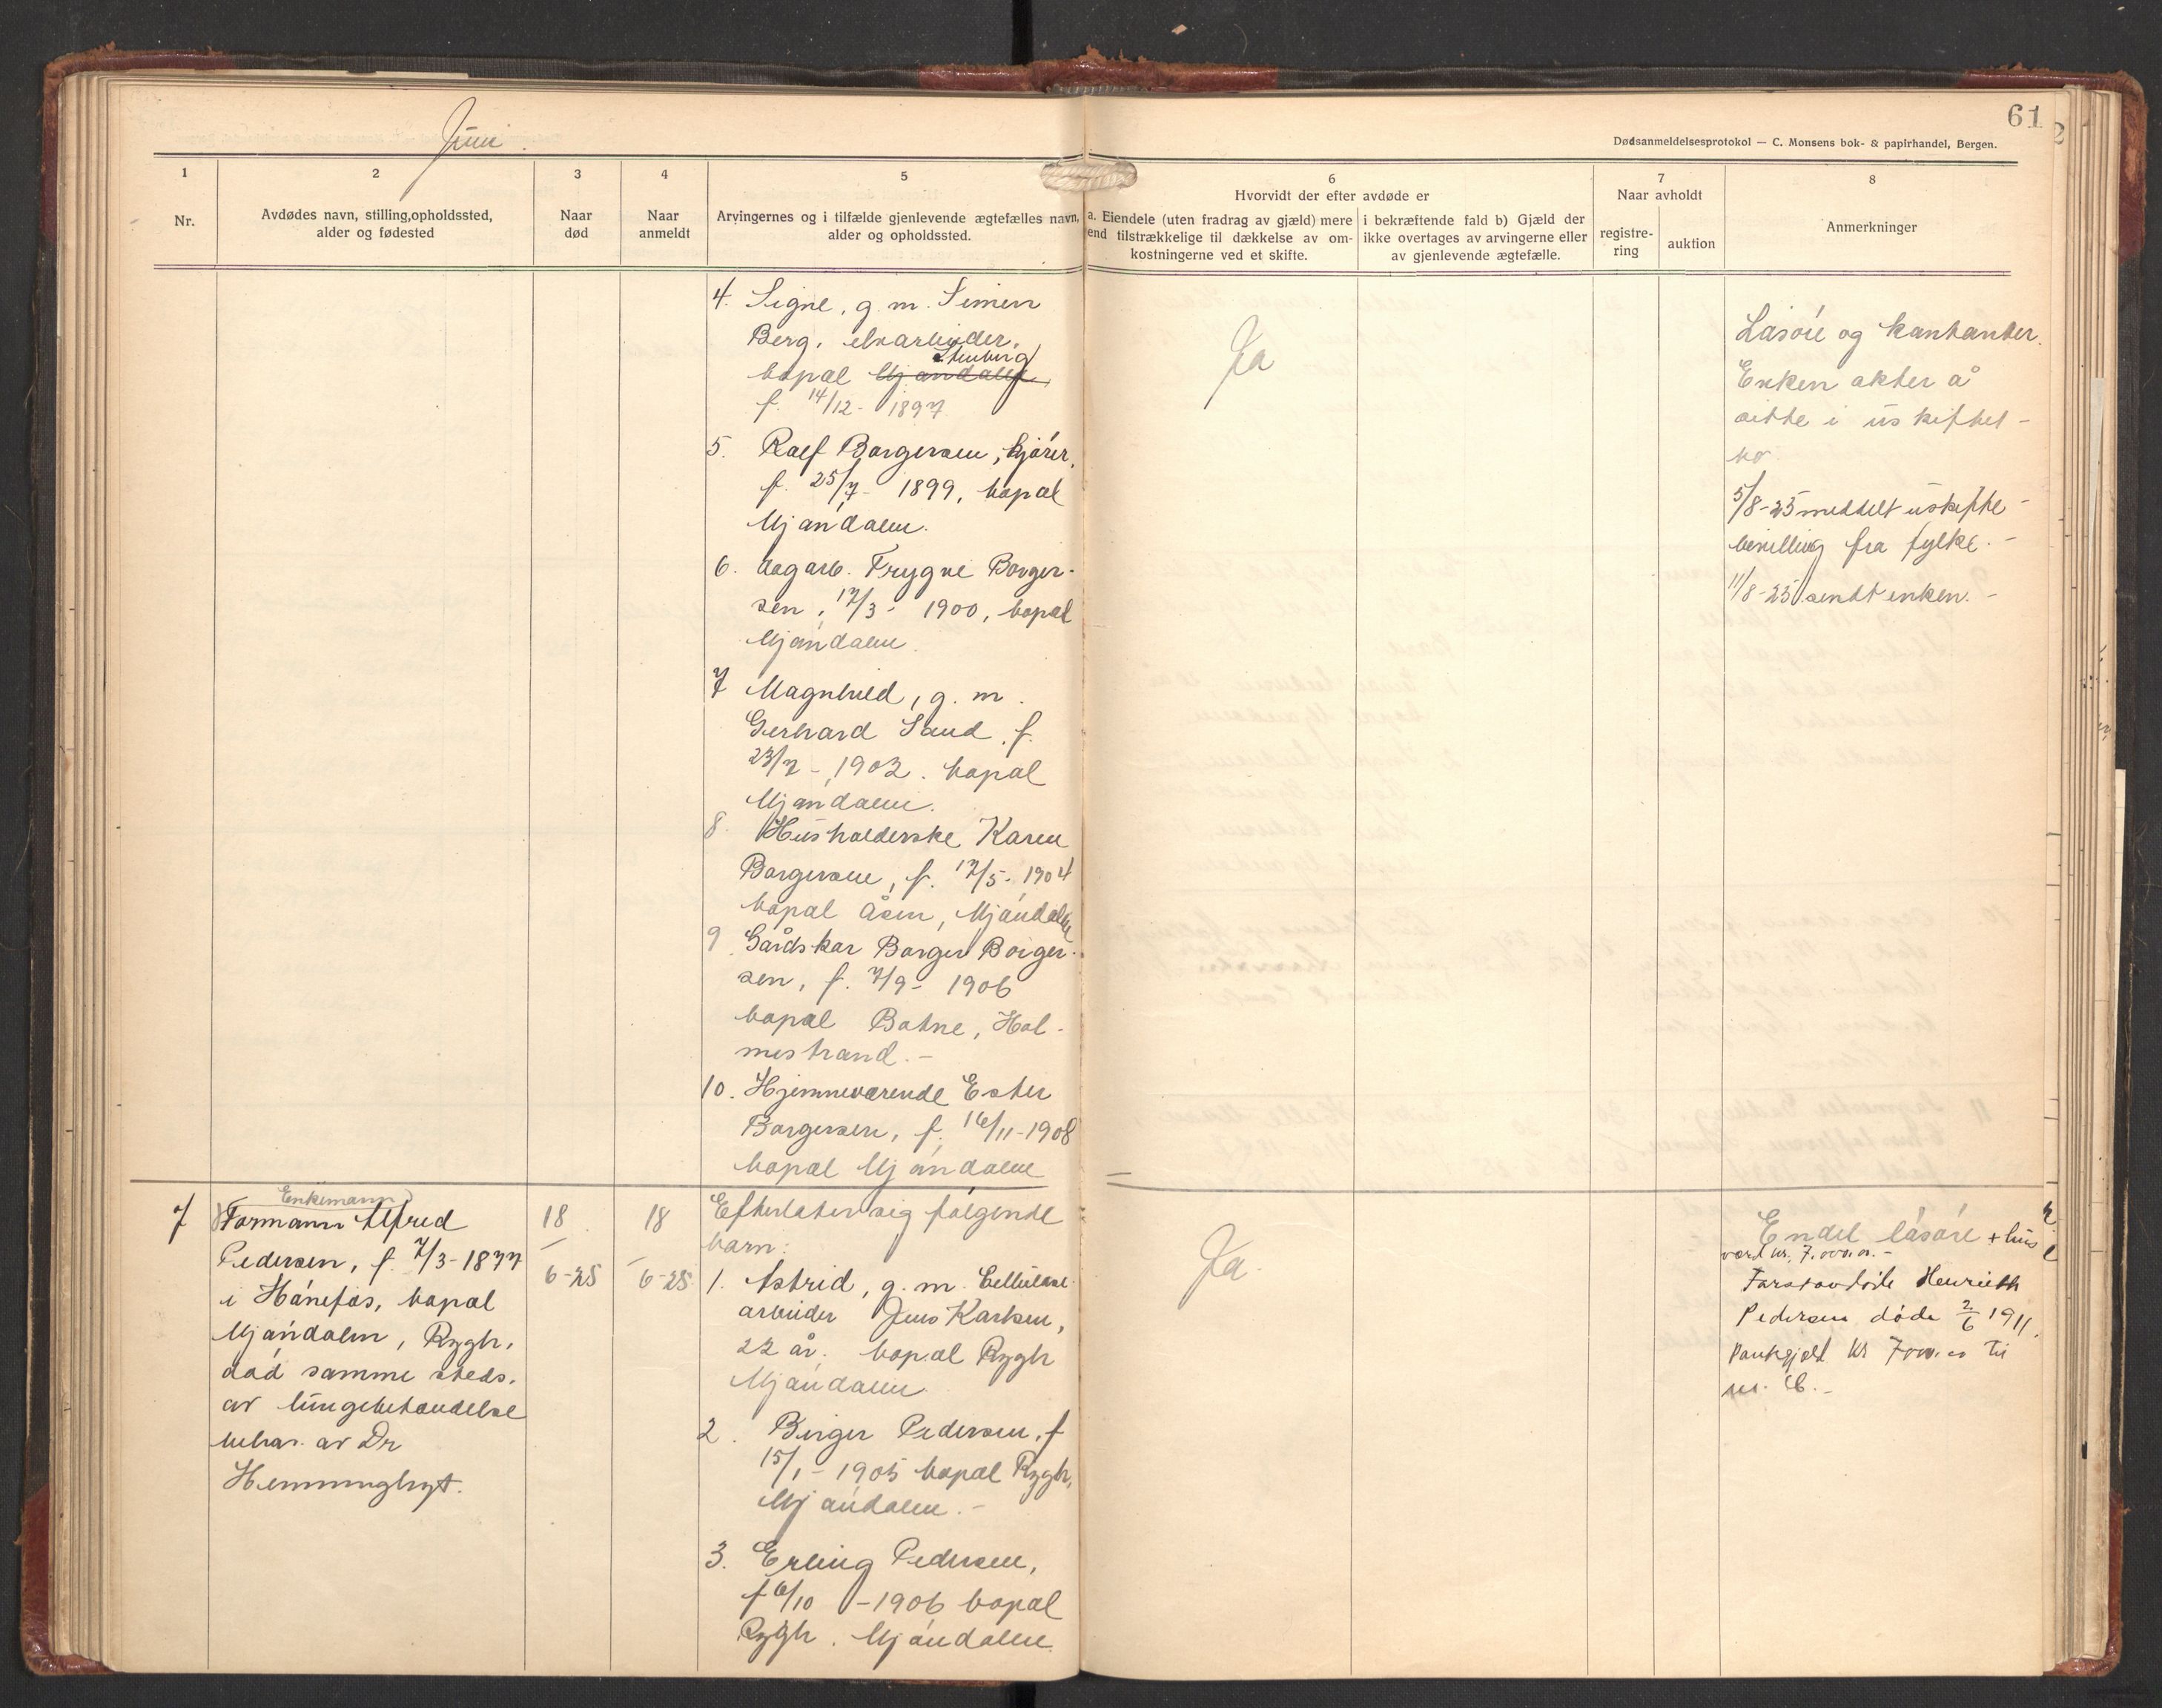 Juni.
61
Dødsanmeldelsesprotokol — C. Monsens bok- & papirhandel, Bergen.
1
2
3
4
5
6
7
8
Nr.
Avdødes navn, stilling, opholdssted,
alder og fødested
Naar
død
Naar
anmeldt
Arvingernes og i tilfælde gjenlevende ægtefælles navn,
alder og opholdssted.
Hvorvidt der efter avdøde er
a. Eiendele (uten fradrag av gjæld) mere
end tilstrækkelige til dækkelse av om-
kostningerne ved et skifte.
i bekræftende fald b) Gjæld der
ikke overtages av arvingerne eller
av gjenlevende ægtefælle.
Naar avholdt
registre-
ring
auktion
Anmerkninger
4. Signe, g. m. Simen
Berg, elvarbeider,
Stenberg
bopæl Mjøndalen
f. 14/12- 1897
5. Rolf Borgersen, kjører,
f. 25/7- 1899, bopæl
Mjøndalen.
6. dagarb. Trygve Borger-
sen, 17/3- 1900, bopæl
Mjøndalen.
7 Magnhild, g. m.
Gerhard Sand, f.
23/7- 1902. bopæl
Mjøndalen.
8 Husholderske Karen
Borgersen, f. 17/5- 1904
bopæl Åsen, Mjøndalen
9 Gårdskar Borger Borger-
sen, f. 7/9- 1906
bopæl Botne, Hol-
mestrand.-
10. Hjemmeværende Ester
Borgersen, f. 16/11-1908
bopæl Mjøndalen
Ja
Løsøre og kontanter.
Enken akter å
sitte i uskiftet-
bo
5/8-25 meddelt uskifte-
bevilling fra fylke.-
11/8-25 sendt enken.-
7
Enkemann
Formann Alfred
Pedersen, f. 7/3-1877
i Hønefos, bopæl
Mjøndalen, Rygh,
død samme steds.
av lungebetændelse
behar. av Dr
18
6-25
18
6-25
Efterlater sig følgende
barn:
1. Astrid, g. m. Cellulose-
arbeider Jens Karlsen,
22 år. bopæl Rygh
Mjøndalen
2. Birger Pedersen, f
15/1- 1905 bopæl Rygh,
Mjøndalen.-
3. Erling Pedersen,
f 6/10 -1906 bopæl
Rygh. Mjøndalen
Ja.
Endel løsøre + hus
værd kr. 7.000.00.-
Førstavdøde Henriette
Pedersen døde 2/6 1911.
Pantgjæld kr 7000.00 til